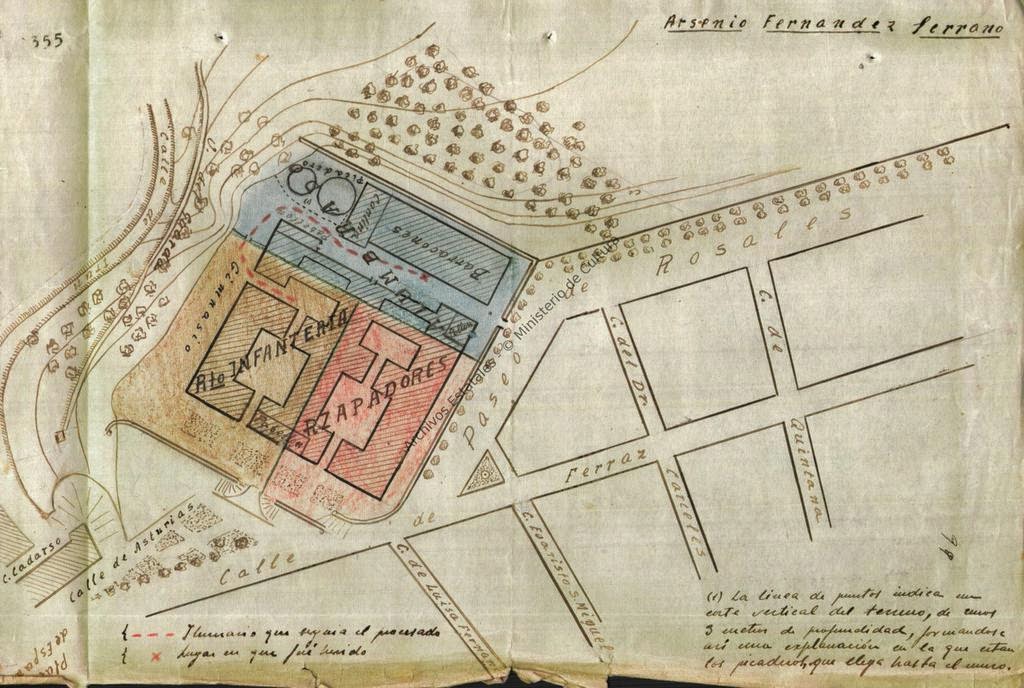 355
Arsenio Fernandez Serrano
Calle de
Picadero
Barracones
Gimnasio
Rto INFANTERIA
RZAPADORES
Paseo de Rosales
C. del Dr.
Carceles
C. de
Quintana
Calle de Ferraz
C. Evaristo S. Miguel
C. de Luisa Fernan
C. Cadarso
Calle de Asturias
Plaza
de España
Archivos Estatales © Ministerio de Cultura
Itinerario que seguia el procesado
Lugar en que fué herido
(1) La linea de puntos indica un
corte vertical del terreno, de unos
3 metros de profundidad, formandose
asi una explanación en la que estan
los picaderos, que llega hasta el muro.